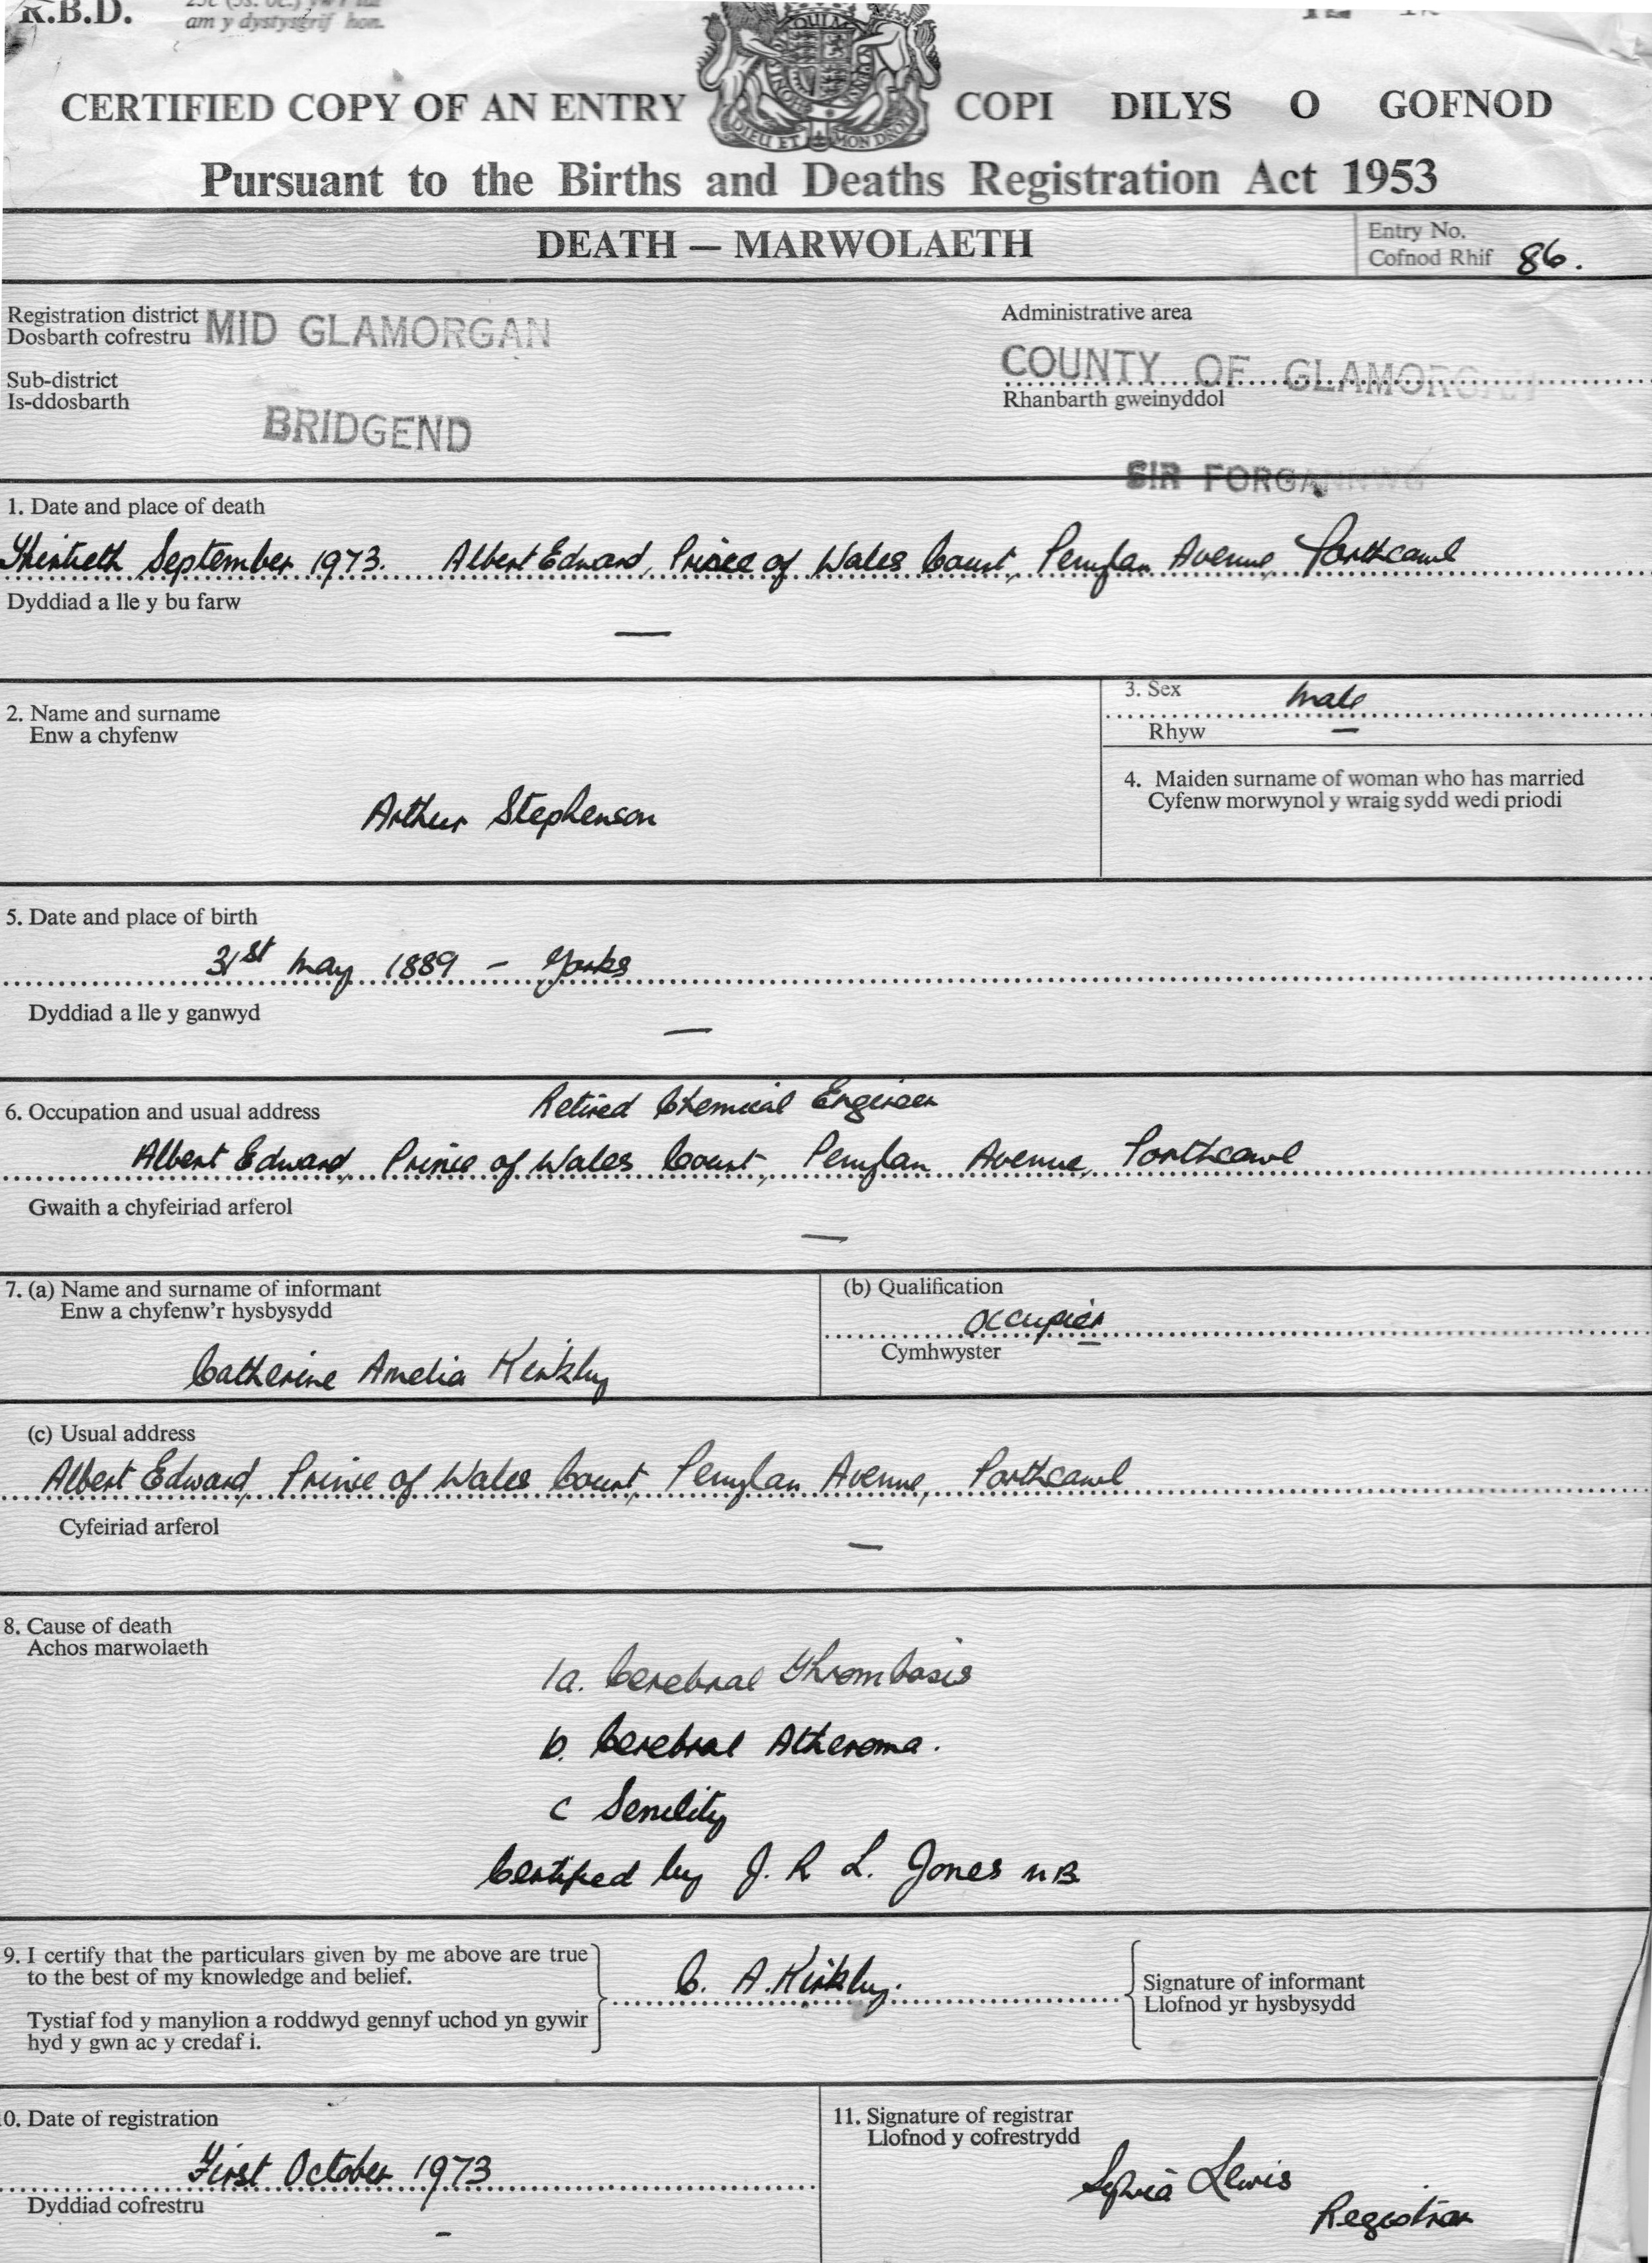 R.B.D.
am y dystysgrif hon.
CERTIFIED COPY OF AN ENTRY COPI DILYS O GOFNOD
DIEU ET MON DROIT
Pursuant to the Births and Deaths Registration Act 1953
DEATH — MARWOLAETH
Entry No.
Cofnod Rhif 86.
Registration district
Dosbarth cofrestru MID GLAMORGAN
Sub-district
Is-ddosbarth
BRIDGEND
Administrative area
COUNTY OF GLAMORGAN
Rhanbarth gweinyddol
SIR FORGANNWG
1. Date and place of death
Thirtieth September 1973. Albert Edward, Prince of Wales Court, Penylan Avenue, Porthcawl
Dyddiad a lle y bu farw
—
2. Name and surname
Enw a chyfenw
Arthur Stephenson
3. Sex male
Rhyw —
4. Maiden surname of woman who has married
Cyfenw morwynol y wraig sydd wedi priodi
5. Date and place of birth
31st May 1889 – Yorks
Dyddiad a lle y ganwyd
—
6. Occupation and usual address Retired Chemical Engineer
Albert Edward, Prince of Wales Court, Penylan Avenue, Porthcawl
Gwaith a chyfeiriad arferol
—
7. (a) Name and surname of informant
Enw a chyfenw'r hysbysydd
Catherine Amelia Kirkby
(b) Qualification
occupier
Cymhwyster
(c) Usual address
Albert Edward, Prince of Wales Court, Penylan Avenue, Porthcawl
Cyfeiriad arferol
—
8. Cause of death
Achos marwolaeth
1a. Cerebral Thrombosis
b. Cerebral Atheroma.
c Senility
Certified by J. R L. Jones MB
9. I certify that the particulars given by me above are true
to the best of my knowledge and belief.
Tystiaf fod y manylion a roddwyd gennyf uchod yn gywir
hyd y gwn ac y credaf i.
C. A. Kirkby.
Signature of informant
Llofnod yr hysbysydd
0. Date of registration
First October 1973
Dyddiad cofrestru
–
11. Signature of registrar
Llofnod y cofrestrydd
Sylvia Lewis
Registrar